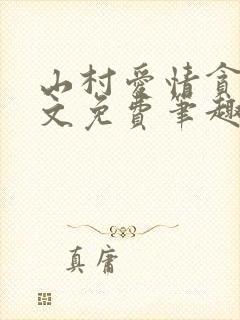 山村爱情贪
文免费笔趣
真庸